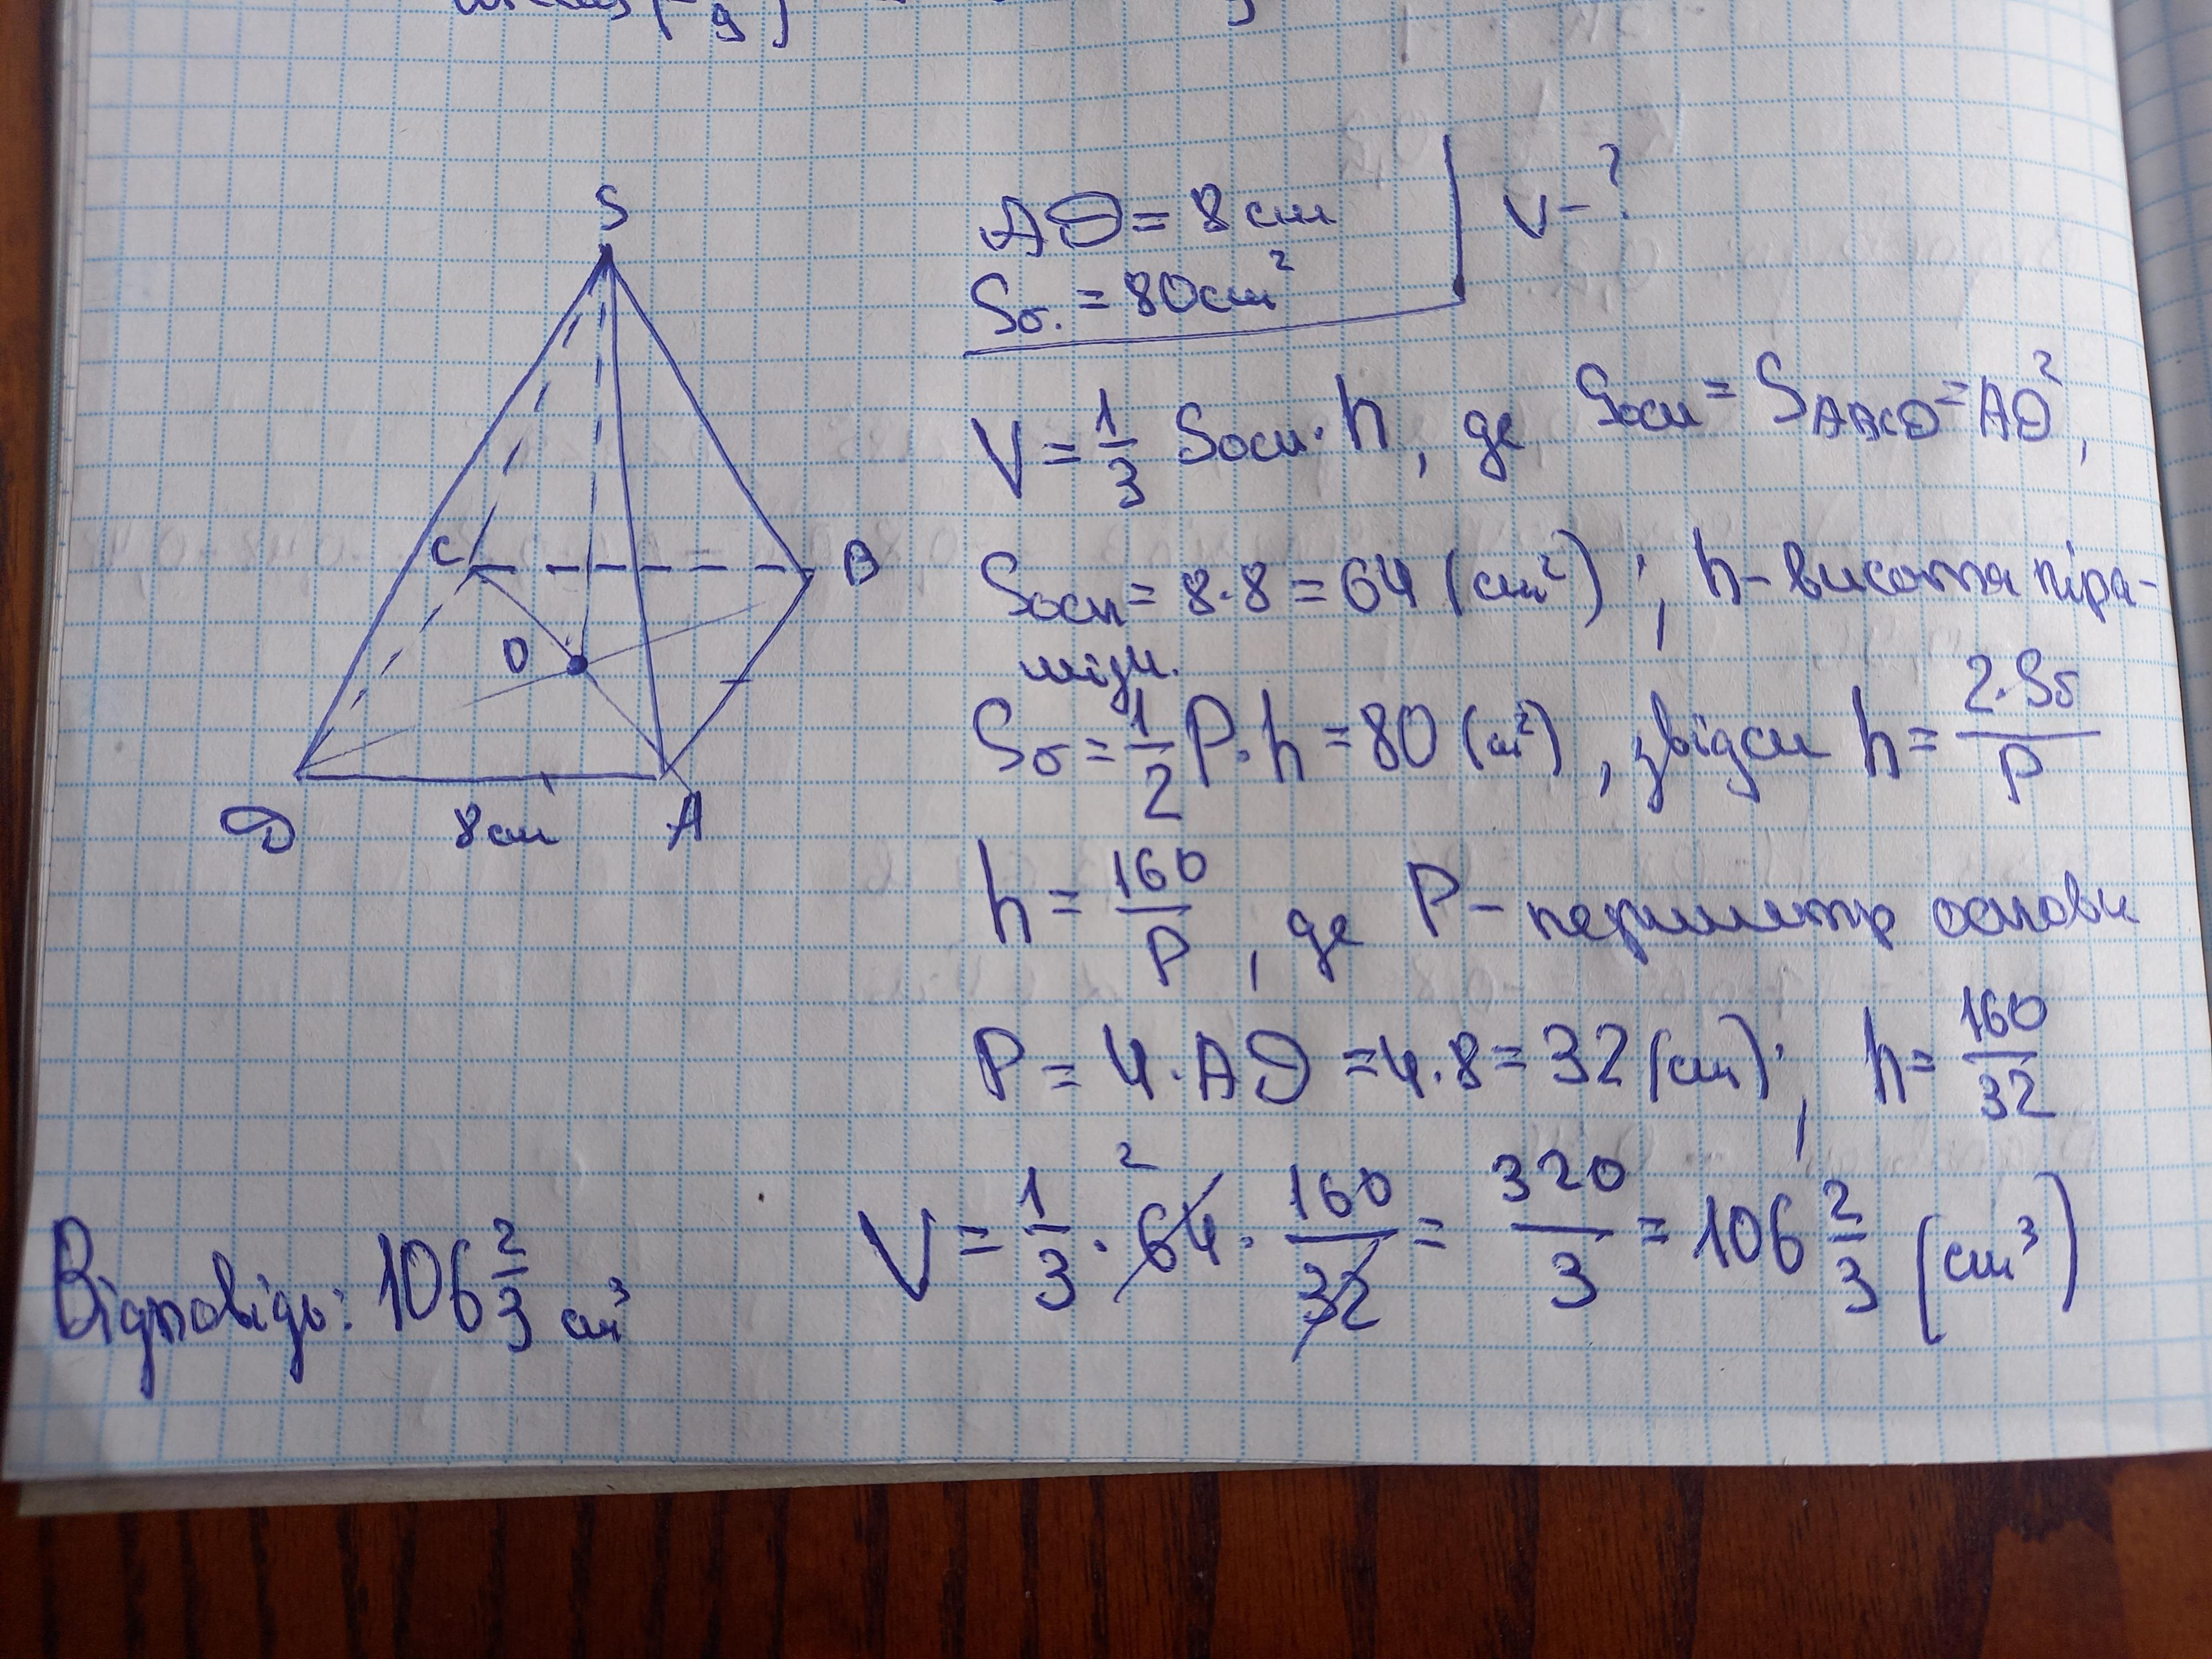 S
C
B
O
D
8 см
A
AD = 8 см
Sб. = 80 см²
V - ?
V = 1/3 Sосн · h, де Sосн = SABCD = AD²,
Sосн = 8·8 = 64 (см²); h - висота піра-
міди.
Sб = 1/2 P · h = 80 (см²), звідси h = 2·Sб/P
h = 160/P, де P - периметр основи
P = 4·AD = 4·8 = 32 (см); h = 160/32
V = 1/3 · 64 · 160/32 = 320/3 = 106 2/3 (см³)
2
Відповідь: 106 2/3 см³